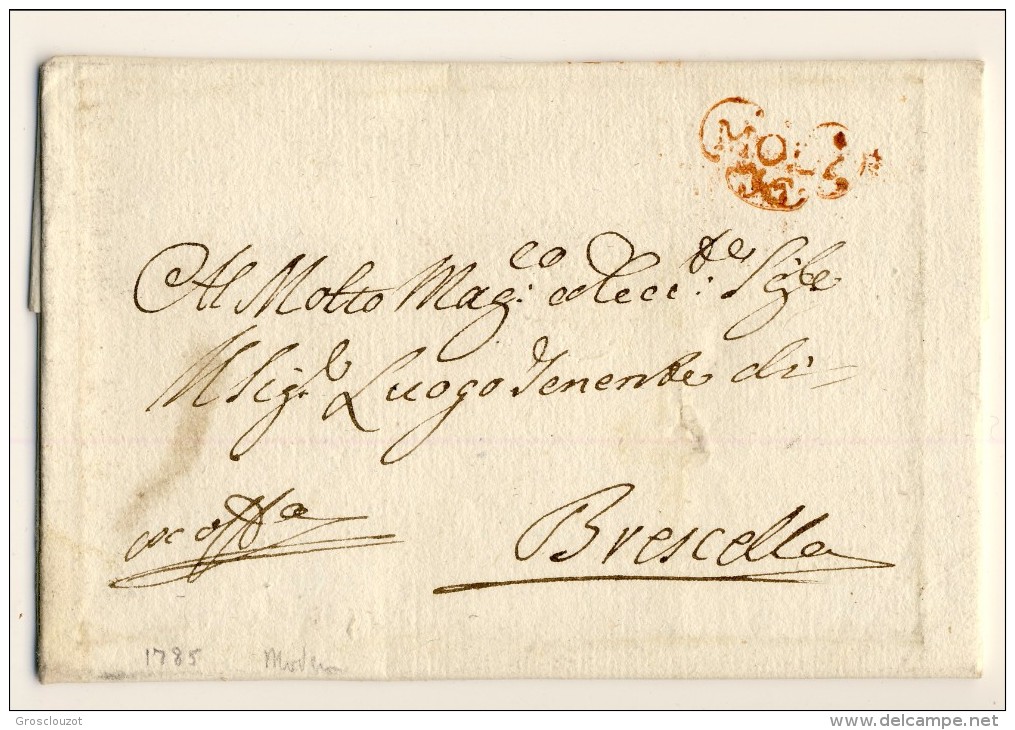 MO
Al Molto Mag:co et Ecc:te Sig:re
Il Sig:r Luogo Tenente di
Brescello
ex off:o
1785 Moden
Grosclouzot
www.delcampe.net